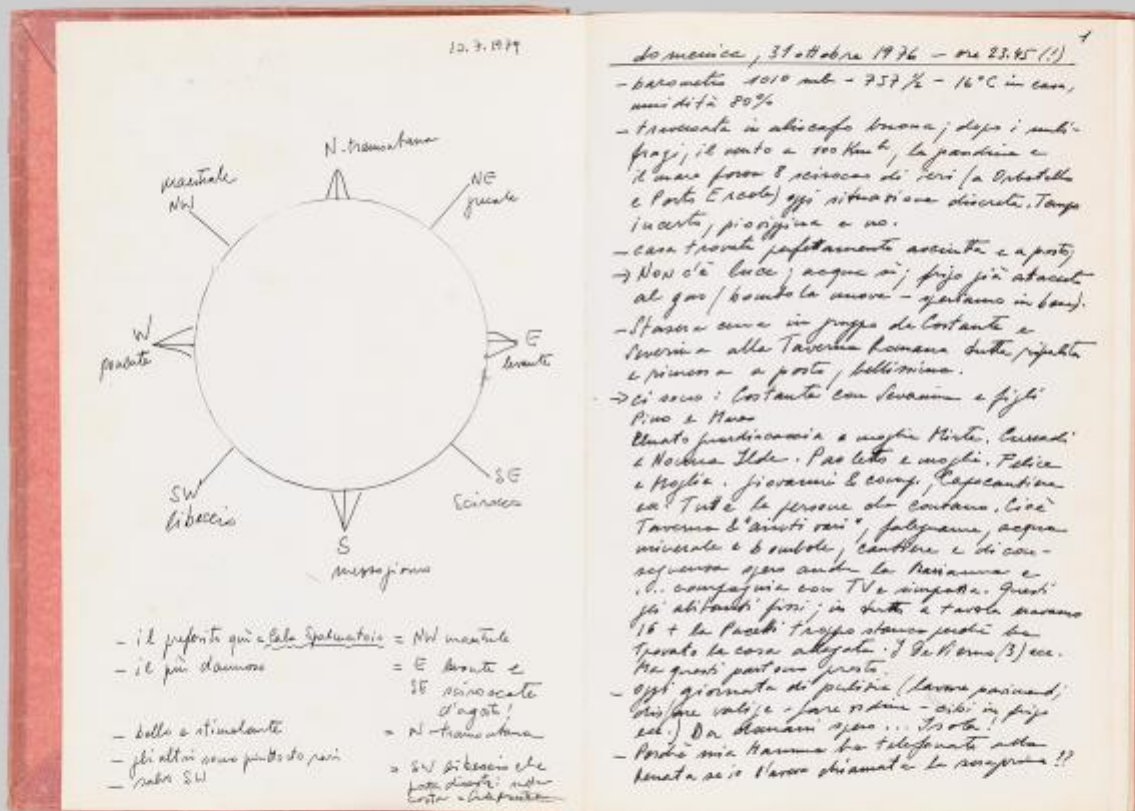 12.7.1979
N-tramontana
maestrale
NW
NE
grecale
W
ponente
E
levante
SW
libeccio
SE
Scirocco
S
mezzogiorno
- il preferito qui a Cala Spalmatoio = NW maestrale
- il più dannoso = E levante e
SE sciroccate
d'agosto!
- bello e stimolante = N-tramontana
- gli altri sono piuttosto rari
- salvo SW = SW libeccio che
costa
1
domenica, 31 ottobre 1976 - ore 23.45 (!)
- barometro 1010 mb - 757 1/2 - 16°C in casa,
umidità 80%
- traversata in aliscafo buona; dopo i nubi-
fragi, il vento a 100 Kmh, la grandine e
il mare forza 8 scirocco di ieri (a Orbetello
e Porto Ercole) oggi situazione discreta. Tempo
incerto, pioviggina e no.
- casa trovata perfettamente asciutta e a posto;
→ NON c'è luce; acqua sì; frigo già attaccato
al gas (bombola nuova - speriamo in bene).
- Stasera cena in gruppo da Costante e
Severina alla Taverna Romana tutta ripulita
e rimessa a posto, bellissima.
→ ci sono: Costante con Severina e figli
Pino e
guardiacaccia e moglie Mirte.
e Nonna Ilde. Paoletto e moglie. Felice
e Moglie. Giovanni & comp.
Tutte le persone che contano. Cioè
Taverna & "aiuti vari", falegname, acqua
minerale e bombole, cantiere e di con-
seguenza spero anche la Marianna e
compagnia con TV e simpatia. Questi
gli abitanti fissi; in tutto a tavola eravamo
16 + la troppo stanca perché ha
trovato la casa allagata. I (3) ecc.
Ma questi partono presto.
- oggi giornata di pulizia (lavare pavimenti,
disfare valige - fare ordine - cibi in frigo
ecc.) Da domani spero ... Isola!
- Perché mia Mamma ha telefonato alla
Renata se io l'avevo chiamata la sera prima!?